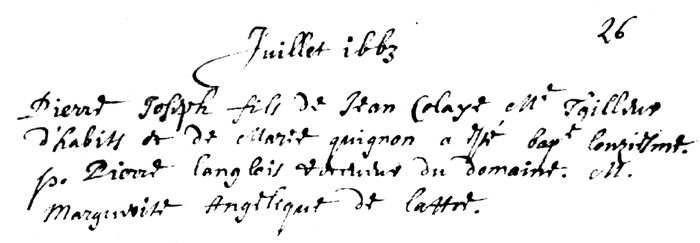 26
Juillet 1663
Pierre Joseph fils de Jean Colaye Me Tailleur
d'habits & de Marie quignon a esté bapé lonziesme.
p. Pierre langlois receveur du domaine. M.
Marguerite Angelique de lattre.